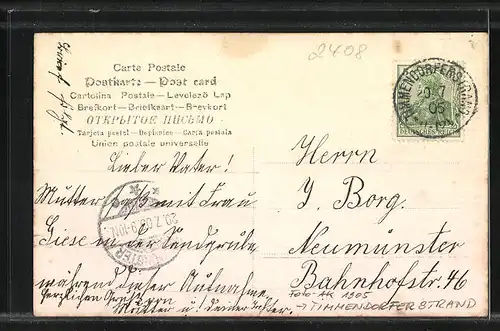 2408
Carte Postale
Postkarte — Post card
Cartolina Postale — Levelező Lap
Brefkort — Briefkaart — Brevkort
ОТКРЫТОЕ ПИСЬМО
Tarjeta postal — Dopisnice — Carta postala
Union postale universelle
TIMMENDORFERSTRAND
20.7
05
DEUTSCHES REICH
Lieber Vater!
Mutter saß mit Frau
Giese in der Sandgrube
während dieser Aufnahme.
Herzlichen Gruß von
Mutter u. deiner
20.7.05.9-10N.
Herrn
J. Borg.
Neumünster
Bahnhofstr. 46
Foto-AK 1905
→ TIMMENDORFER STRAND